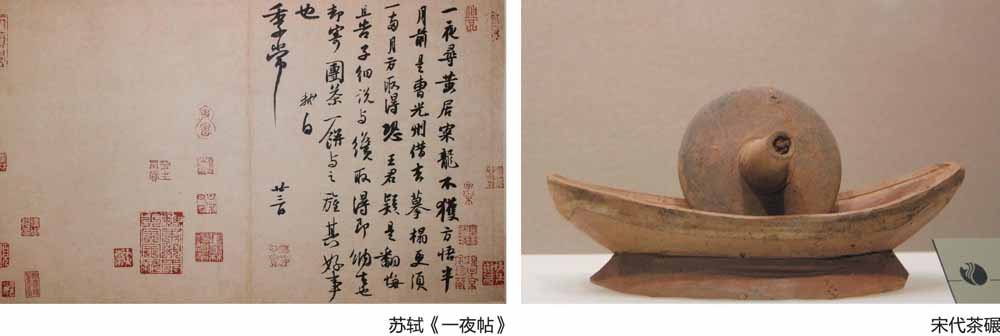 一夜尋黄居寀龍不獲方悟半
月前是曹光州借去摹搨更須
一兩月方取得恐王君疑是翻悔
且告子細說與纔取得即納去也
却寄團茶一餅與之旌其好事
也 軾白
季常 廿三日
苏轼《一夜帖》
宋代茶碾